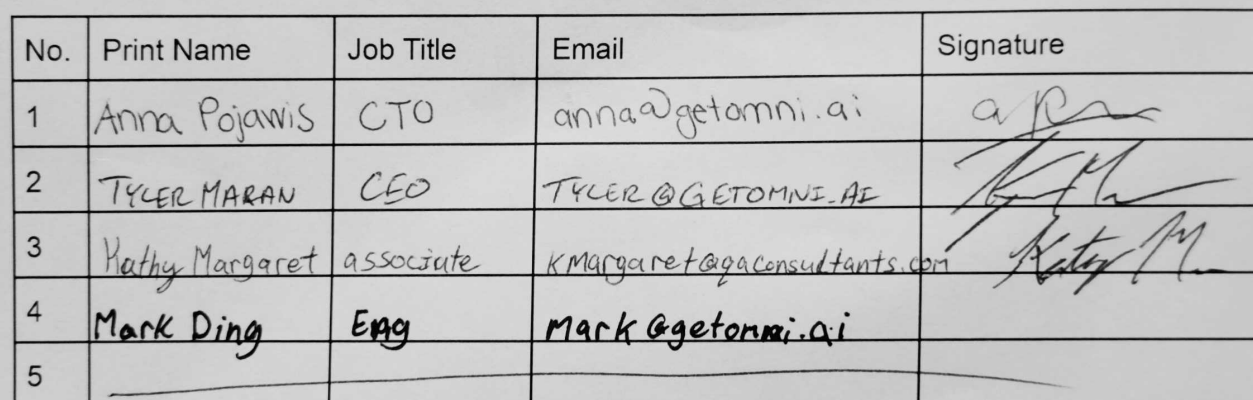 No. Print Name Job Title Email Signature
1 Anna Pojawis CTO anna@getomni.ai
2 TYLER MARAN CEO TYLER@GETOMNI.AI
3 Kathy Margaret associate kmargaret@qaconsultants.com Kathy M
4 Mark Ding Eng mark@getomni.ai
5